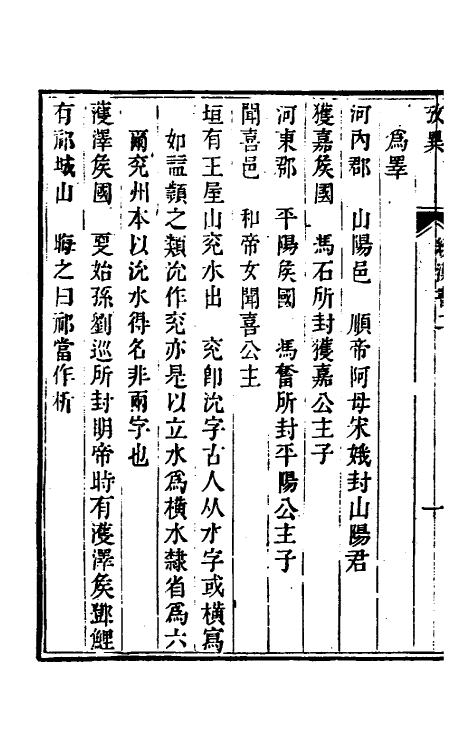 攷異
爲睪
河內郡　山陽邑　順帝阿母宋娥封山陽君
獲嘉矦國　馮石所封獲嘉公主子
河東郡　平陽矦國　馮奮所封平陽公主子
聞喜邑　和帝女聞喜公主
垣有王屋山兖水出　兖卽沇字古人从水字或橫寫
如益頻之類沇作兖亦是以立水爲橫水隸省爲六
爾兖州本以沇水得名非兩字也
濩澤矦國　更始孫劉巡所封明帝時有濩澤矦鄧鯉
有祁城山　晦之曰祁當作析